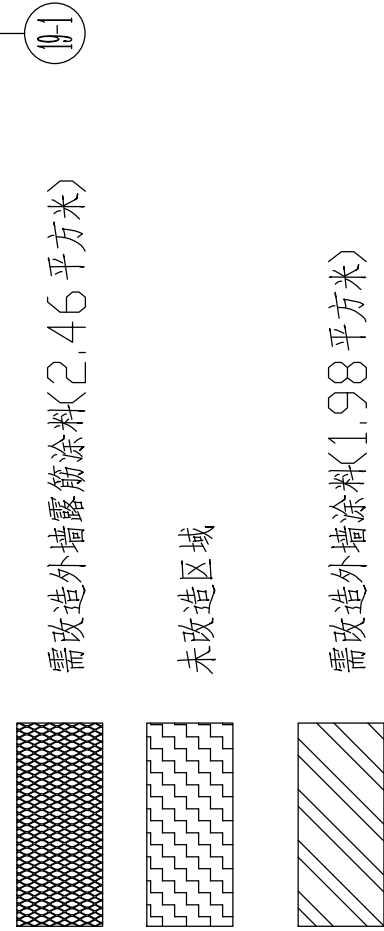 19-1
需改造外墙露筋涂料(2.46平方米)
未改造区域
需改造外墙涂料(1.98平方米)